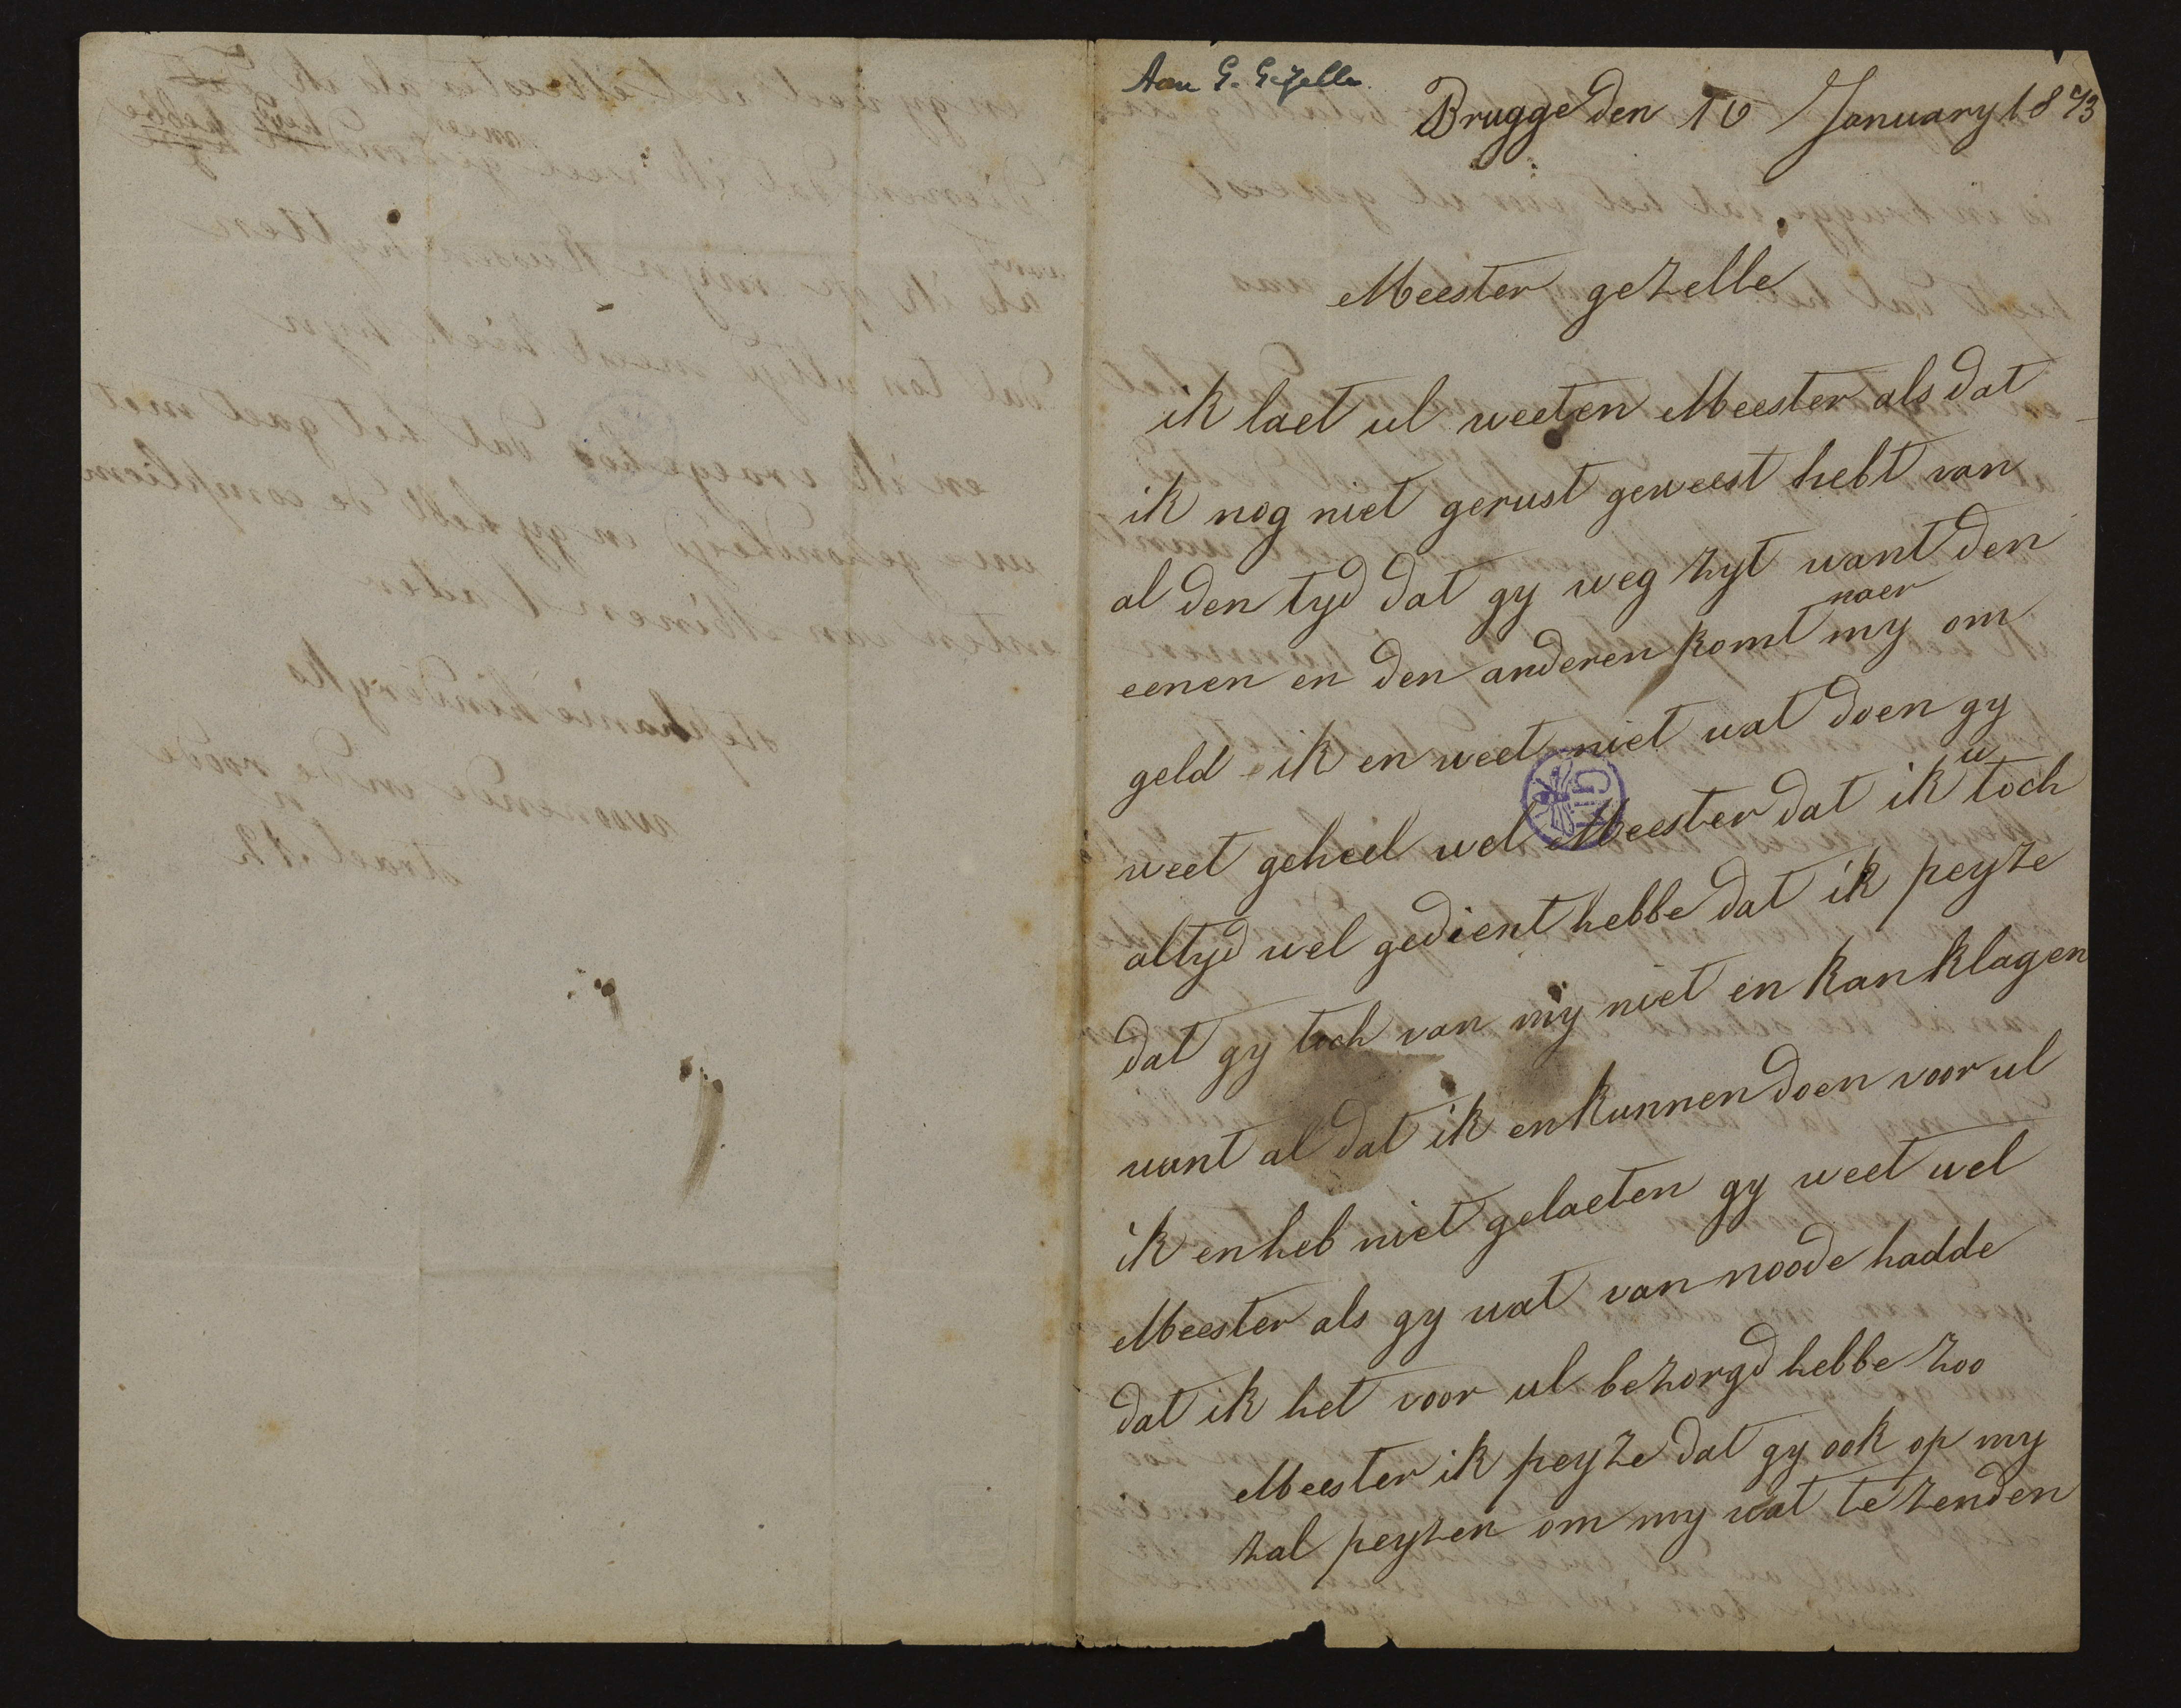 Aan G. Gezelle.
Brugge den 10 January 1873
Meester gezelle
ik laet ul weeten Meester als dat
ik nog niet gerust geweest hebt van
al den tyd dat gy weg zyt want den
eenen en den anderen komt naer my om
geld ik en weet niet wat doen gy
weet geheel wel Meester dat ik u toch
altyd wel gedient hebbe dat ik peyze
dat gy toch van my niet en kan klagen
want al dat ik en kunnen doen voor ul
ik en heb niet gelaeten gy weet wel
Meester als gy wat van noode hadde
dat ik het voor ul bezorgd hebbe zoo
Meester ik peyze dat gy ook op my
zal peyzen om my wat te zenden